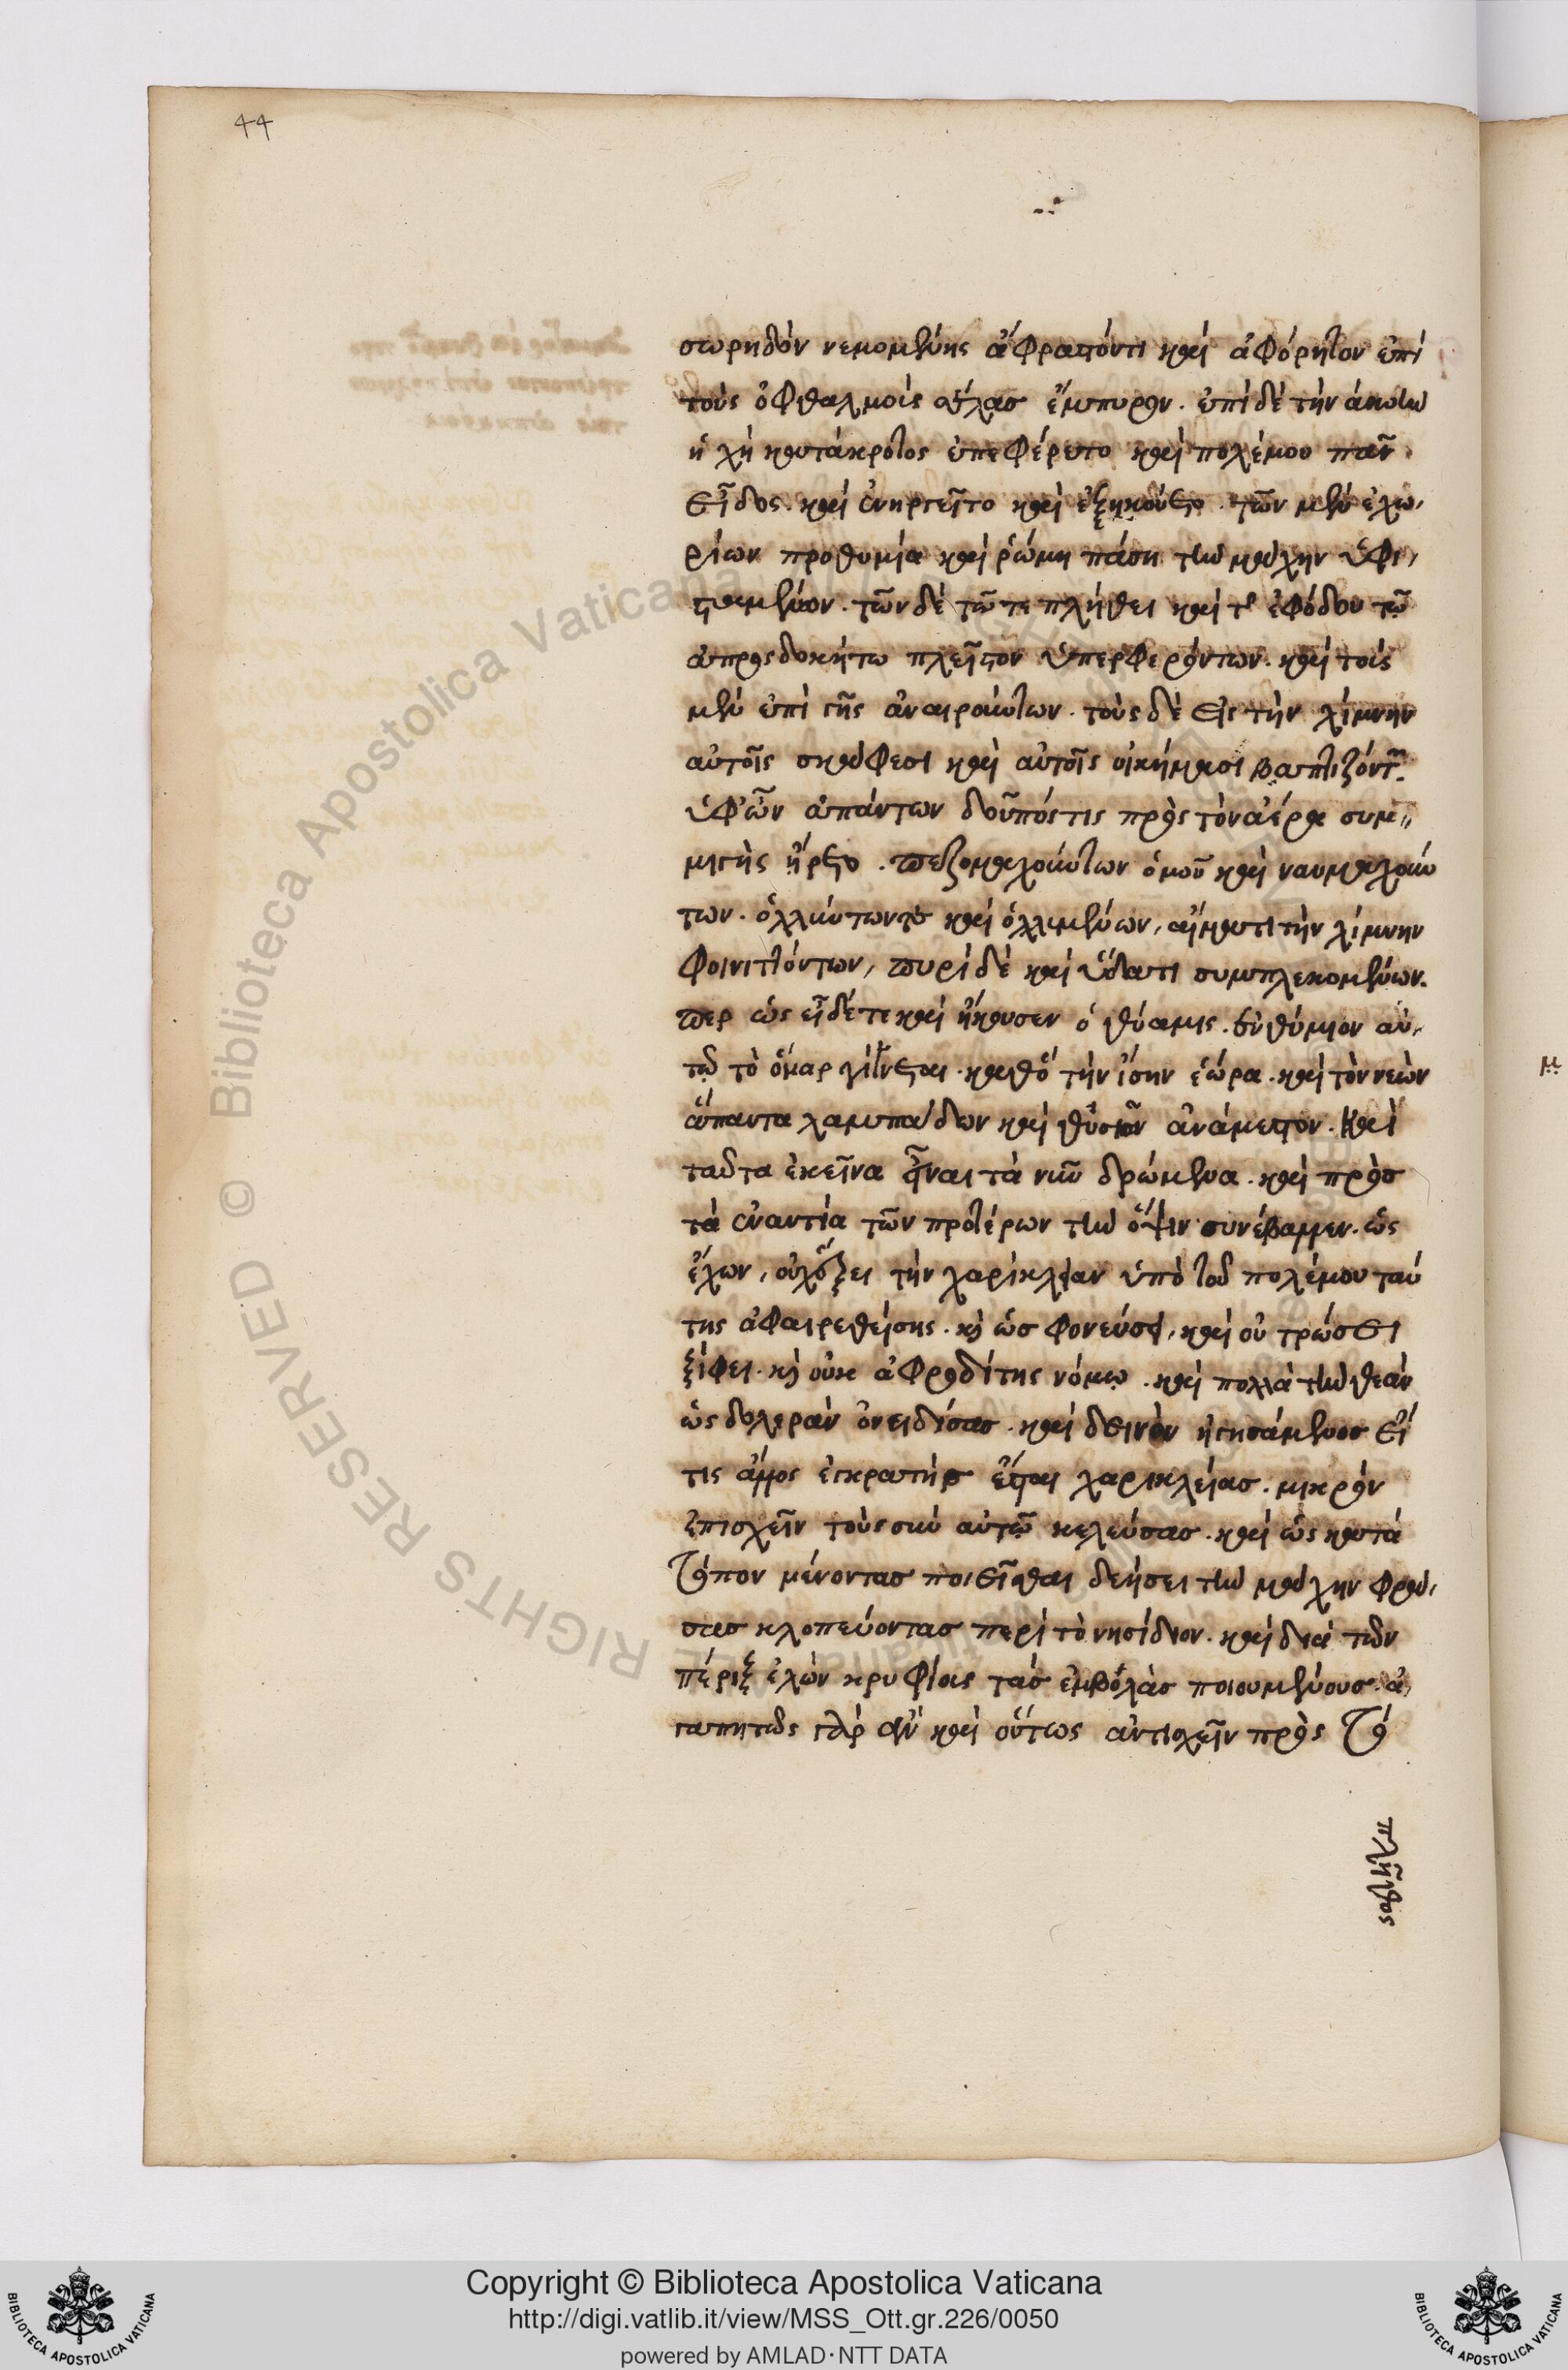 44
σωρηδόν νεμομένης ἄφραστόν τι καί ἀφόρητον ἐπί
τούς ὀφθαλμοίς σέλας ἔμπυρον. ἐπί δέ τήν ἀκοὴν
ἠχή κατάκροτος ὑπεφέρετο καί πολέμου πᾶν
εἶδος. καί ἐνηργεῖτο καί ἐξηκούετο. τῶν μὲν ἐγχω,
ρίων προθυμία καί ῥώμη πάση τὴν μάχην ὑφι,
σταμένων. τῶν δέ τῶ τε πλήθει καί τῆς ἐφόδου τῷ
ἀπροςδοκήτω πλεῖστον ὑπερφερόντων. καί τούς
μὲν ἐπί γῆς ἀναιρούντων. τούς δέ εἰς τήν λίμνην
αὐτοῖς σκάφεσι καί αὐτοῖς οἰκήμασι βαπτιζόντων.
ὑφ' ὧν ἁπάντων δοῦπός τις πρός τόν ἀέρα συμ,,
μιγὴς ἤρετο. πεζομαχούντων ὁμοῦ καί ναυμαχούν
των. ὀλλύντων τε καί ὀλλυμένων, αἵματι τήν λίμνην
φοινιττόντων, πυρί δέ καί ὕδατι συμπλεκομένων.
περ ὡς εἶδέ τε καί ἤκουσεν ὁ θύαμις. ἐνθύμιον αὐ,
τῷ τό ὄναρ γίνεται. καθ' ὅ τήν ἴσην ἑώρα. καί τόν νεὼν
ἅπαντα λαμπάδων καί θυσιῶν ἀνάμεστον. Καί
ταῦτα ἐκεῖνα εἶναι τά νῦν δρώμενα. καί πρός
τά ἐναντία τῶν προτέρων τὴν ὄψιν συνέβαλλεν. ὡς
ἔχων, οὐχ ἕξει τήν χαρίκλειαν ὑπό τοῦ πολέμου ταύ
της ἀφαιρεθείσης. κὶ ὡς φονεύσει, καί οὐ τρώσει
ξίφει. κὶ οὐκ ἀφροδίτης νόμῳ. καί πολλά τὴν θεάν
ὡς δολεράν ὀνειδίσας. καί δεινόν ἡγησάμενος εἴ
τις ἄλλος ἐγκρατής ἔσται χαρικλείας. μικρόν
ἐπισχεῖν τούς σύν αὐτῷ κελεύσας. καί ὡς κατά
τόπον μένοντας ποιεῖσθαι δεήσει τὴν μάχην φρά,
σας κλοπεύοντας περί τό νησίδιον. καί διά τῶν
πέριξ ἑλῶν κρυφίας τάς ἐμβολάς ποιουμένους. ἀ,
γαπητῶς γάρ ἄν καί οὕτως ἀντισχεῖν πρός τό
πλῆθος
Copyright © Biblioteca Apostolica Vaticana
http://digi.vatlib.it/view/MSS_Ott.gr.226/0050
powered by AMLAD·NTT DATA